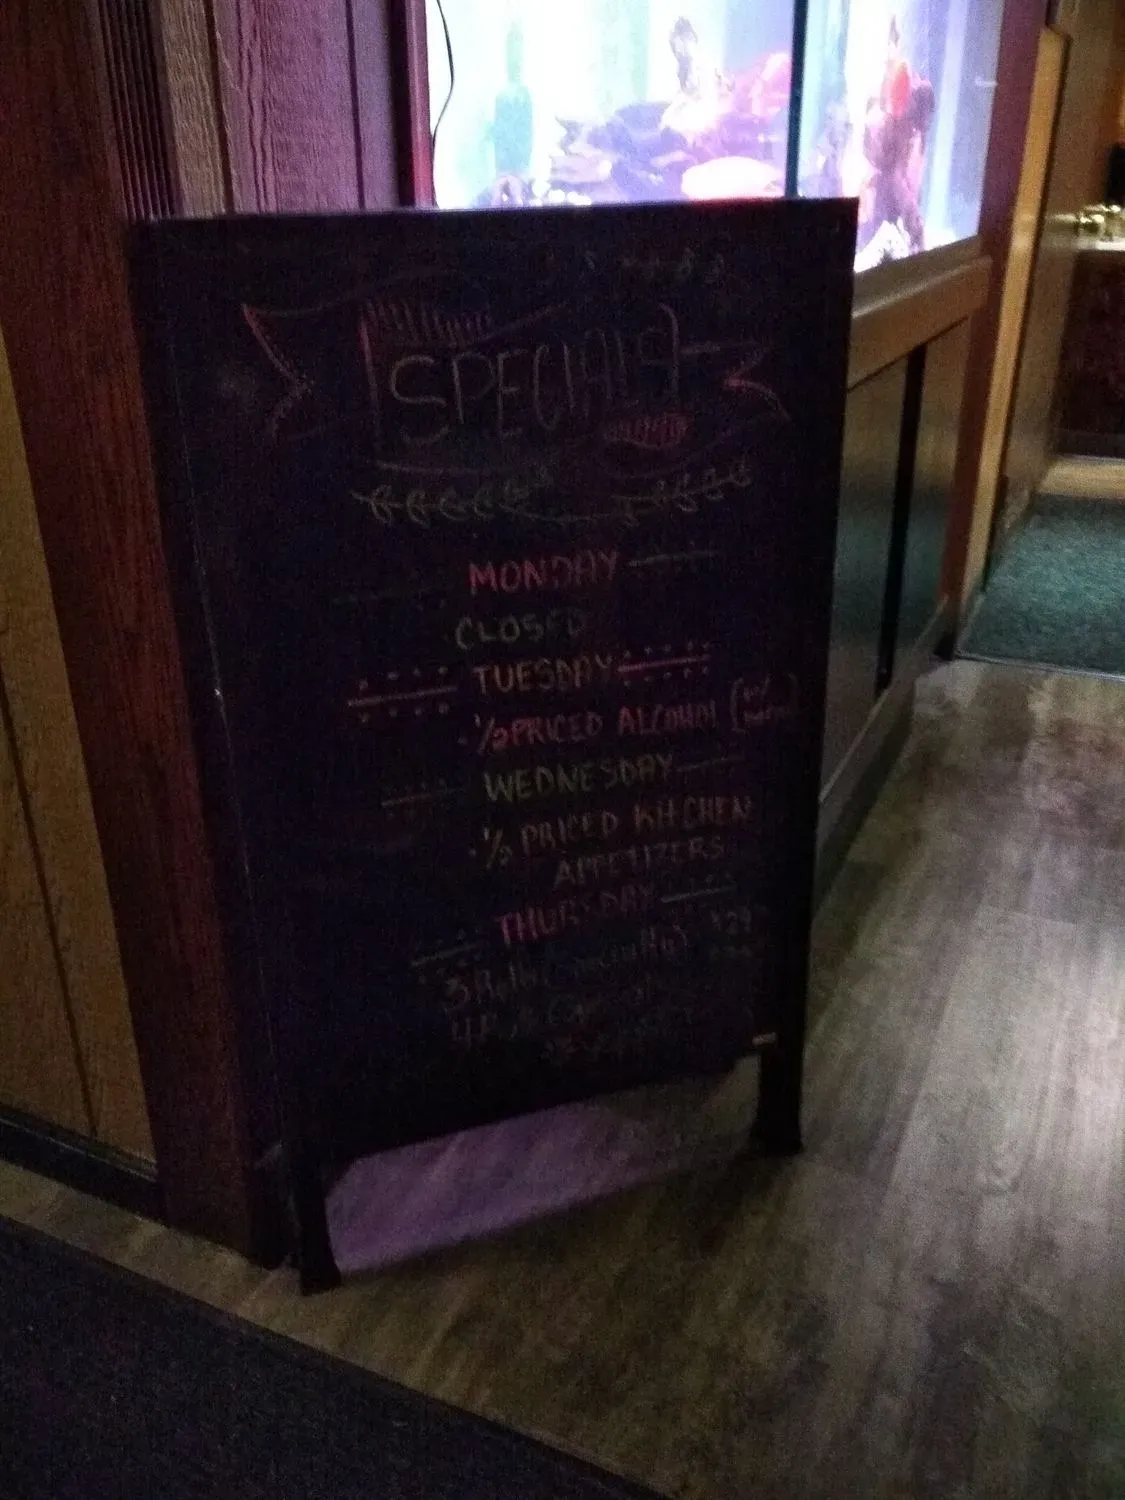 SPECIALS
MONDAY
CLOSED
TUESDAY
- ½ PRICED ALCOHOL (w/
WEDNESDAY
- ½ PRICED KITCHEN
APPETIZERS
THURSDAY
3 Rolls
4